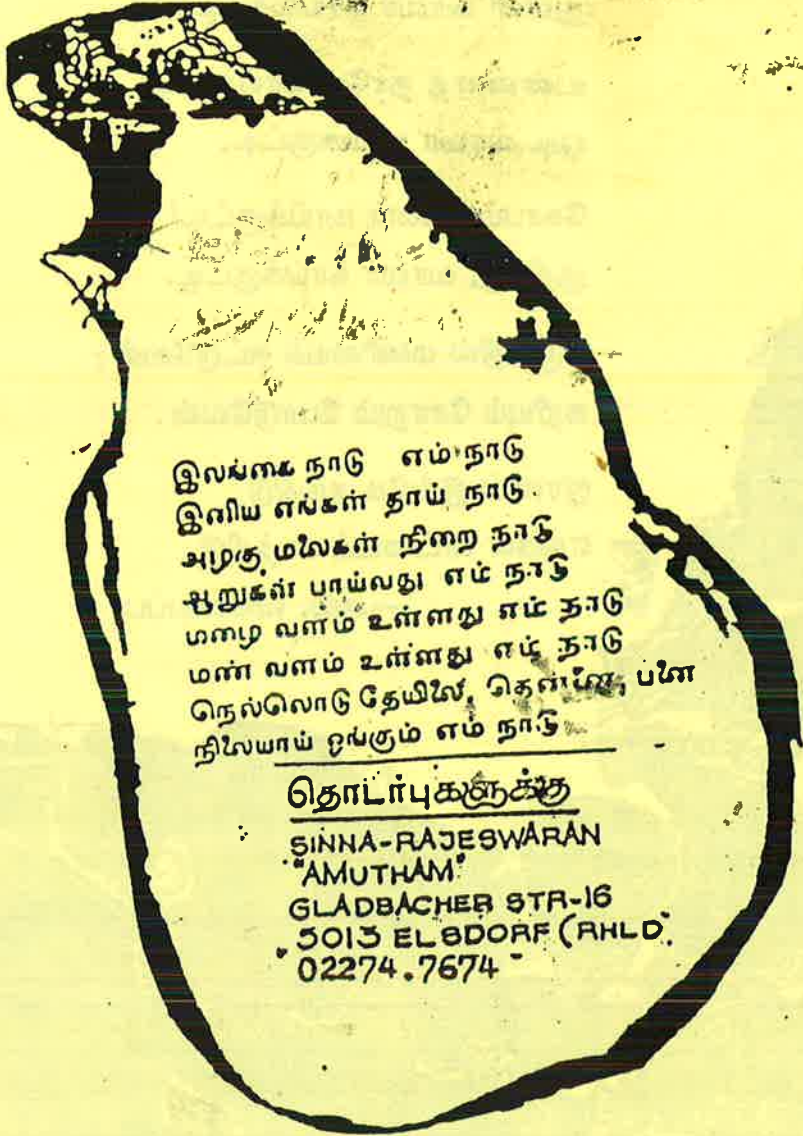 இலங்கை நாடு எம் நாடு
இனிய எங்கள் தாய் நாடு
அழகு மலைகள் நிறை நாடு
ஆறுகள் பாய்வது எம் நாடு
மழை வளம் உள்ளது எம் நாடு
மண் வளம் உள்ளது எம் நாடு
நெல்லொடு தேயிலை, தென்னை, பனை
நிலையாய் ஓங்கும் எம் நாடு
தொடர்புகளுக்கு
SINNA-RAJESWARAN
"AMUTHAM"
GLADBACHER STR-16
5013 ELSDORF (RHLD.
02274.7674